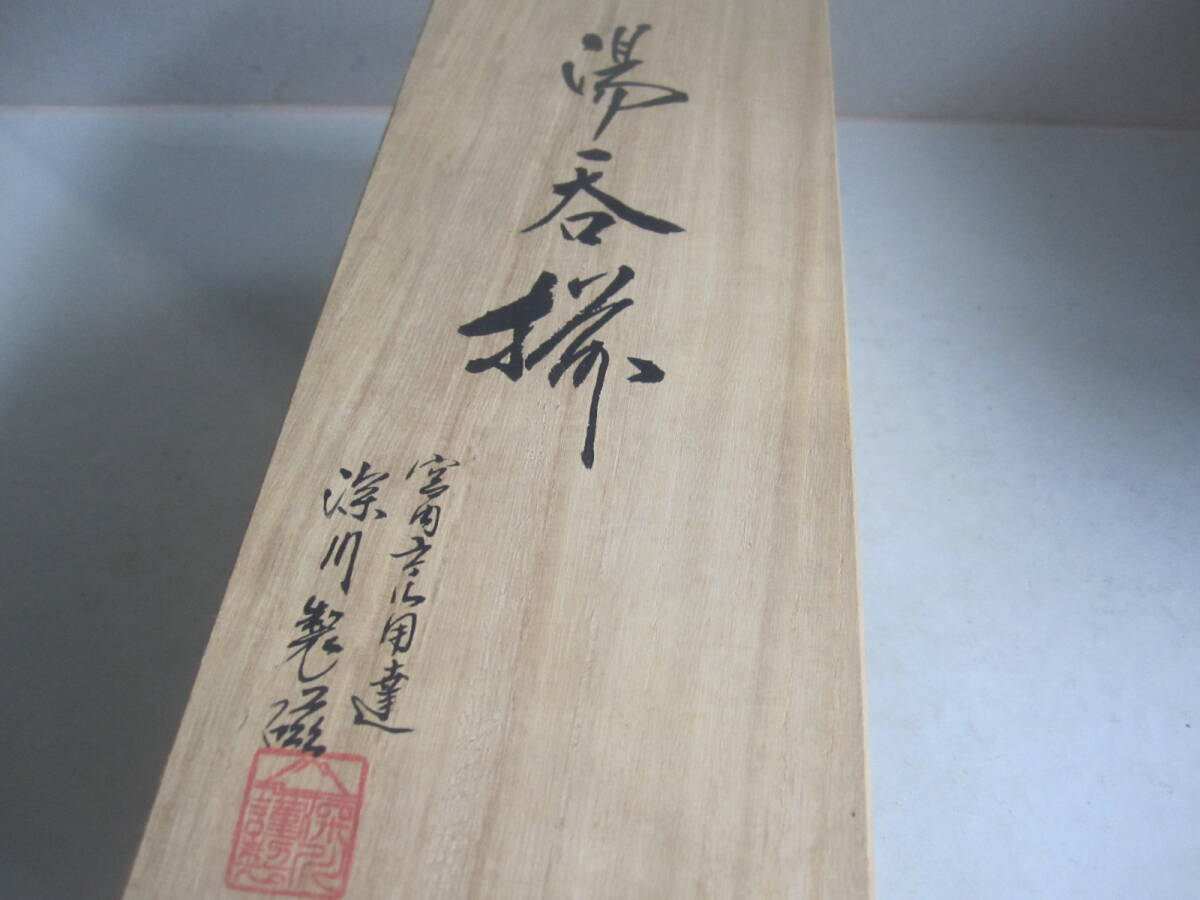 湯呑揃
宮内庁御用達
深川製磁
深川謹製